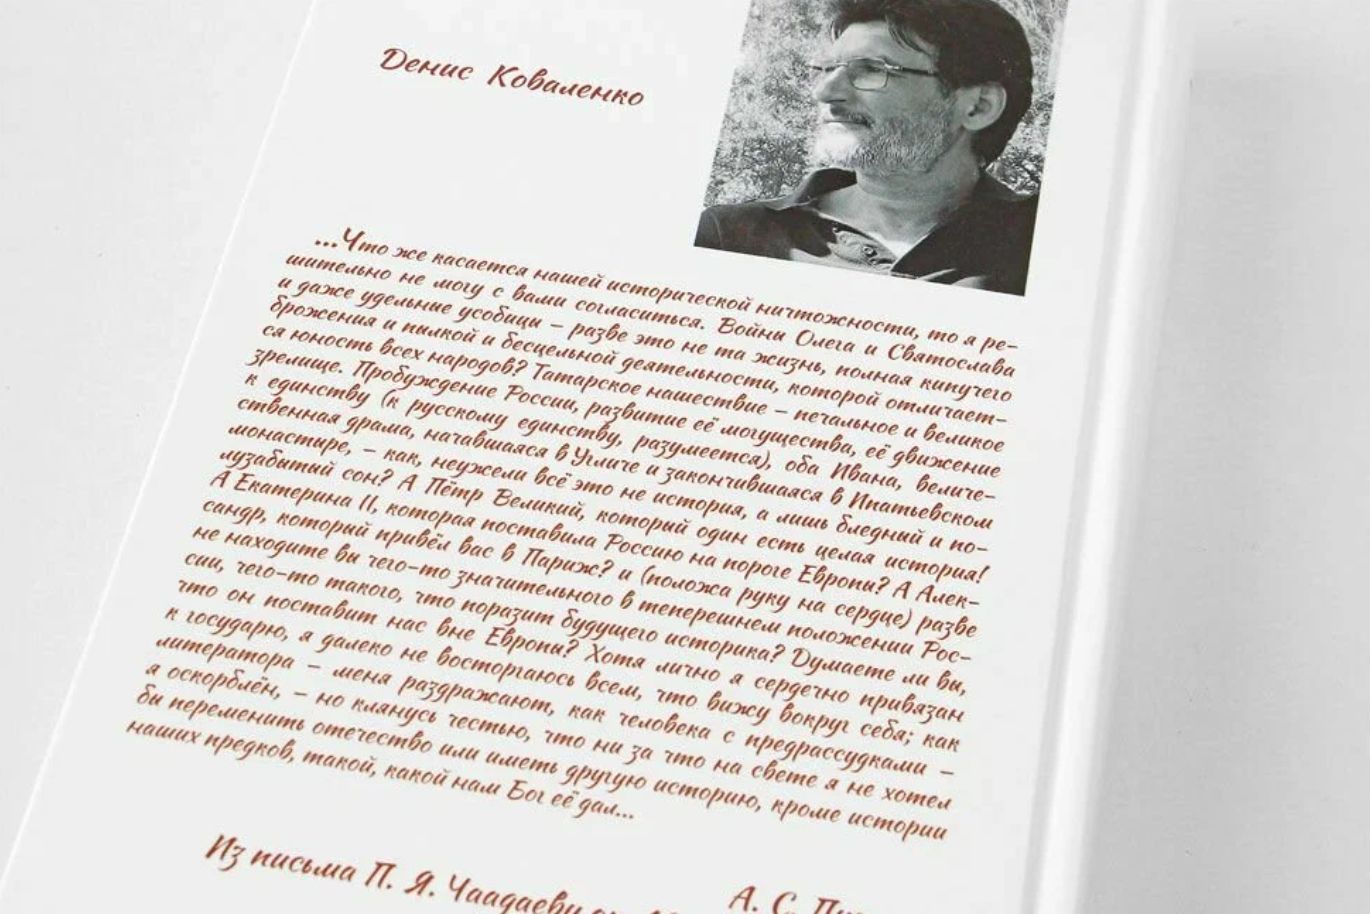 Денис Коваленко
...Что же касается нашей исторической ничтожности, то я ре-
шительно не могу с вами согласиться. Войны Олега и Святослава
и даже удельные усобицы – разве это не та жизнь, полная кипучего
брожения и пылкой и бесцельной деятельности, которой отличает-
ся юность всех народов? Татарское нашествие – печальное и великое
зрелище. Пробуждение России, развитие её могущества, её движение
к единству (к русскому единству, разумеется), оба Ивана, величе-
ственная драма, начавшаяся в Угличе и закончившаяся в Ипатьевском
монастыре, – как, неужели всё это не история, а лишь бледный и по-
лузабытый сон? А Пётр Великий, который один есть целая история!
А Екатерина II, которая поставила Россию на пороге Европы? А Алек-
сандр, который привёл вас в Париж? и (положа руку на сердце) разве
не находите вы чего-то значительного в теперешнем положении Рос-
сии, чего-то такого, что поразит будущего историка? Думаете ли вы,
что он поставит нас вне Европы? Хотя лично я сердечно привязан
к государю, я далеко не восторгаюсь всем, что вижу вокруг себя; как
литератора – меня раздражают, как человека с предрассудками –
я оскорблён, – но клянусь честью, что ни за что на свете я не хотел
бы переменить отечество или иметь другую историю, кроме истории
наших предков, такой, какой нам Бог её дал...
Из письма П. Я. Чаадаеву
А. С.